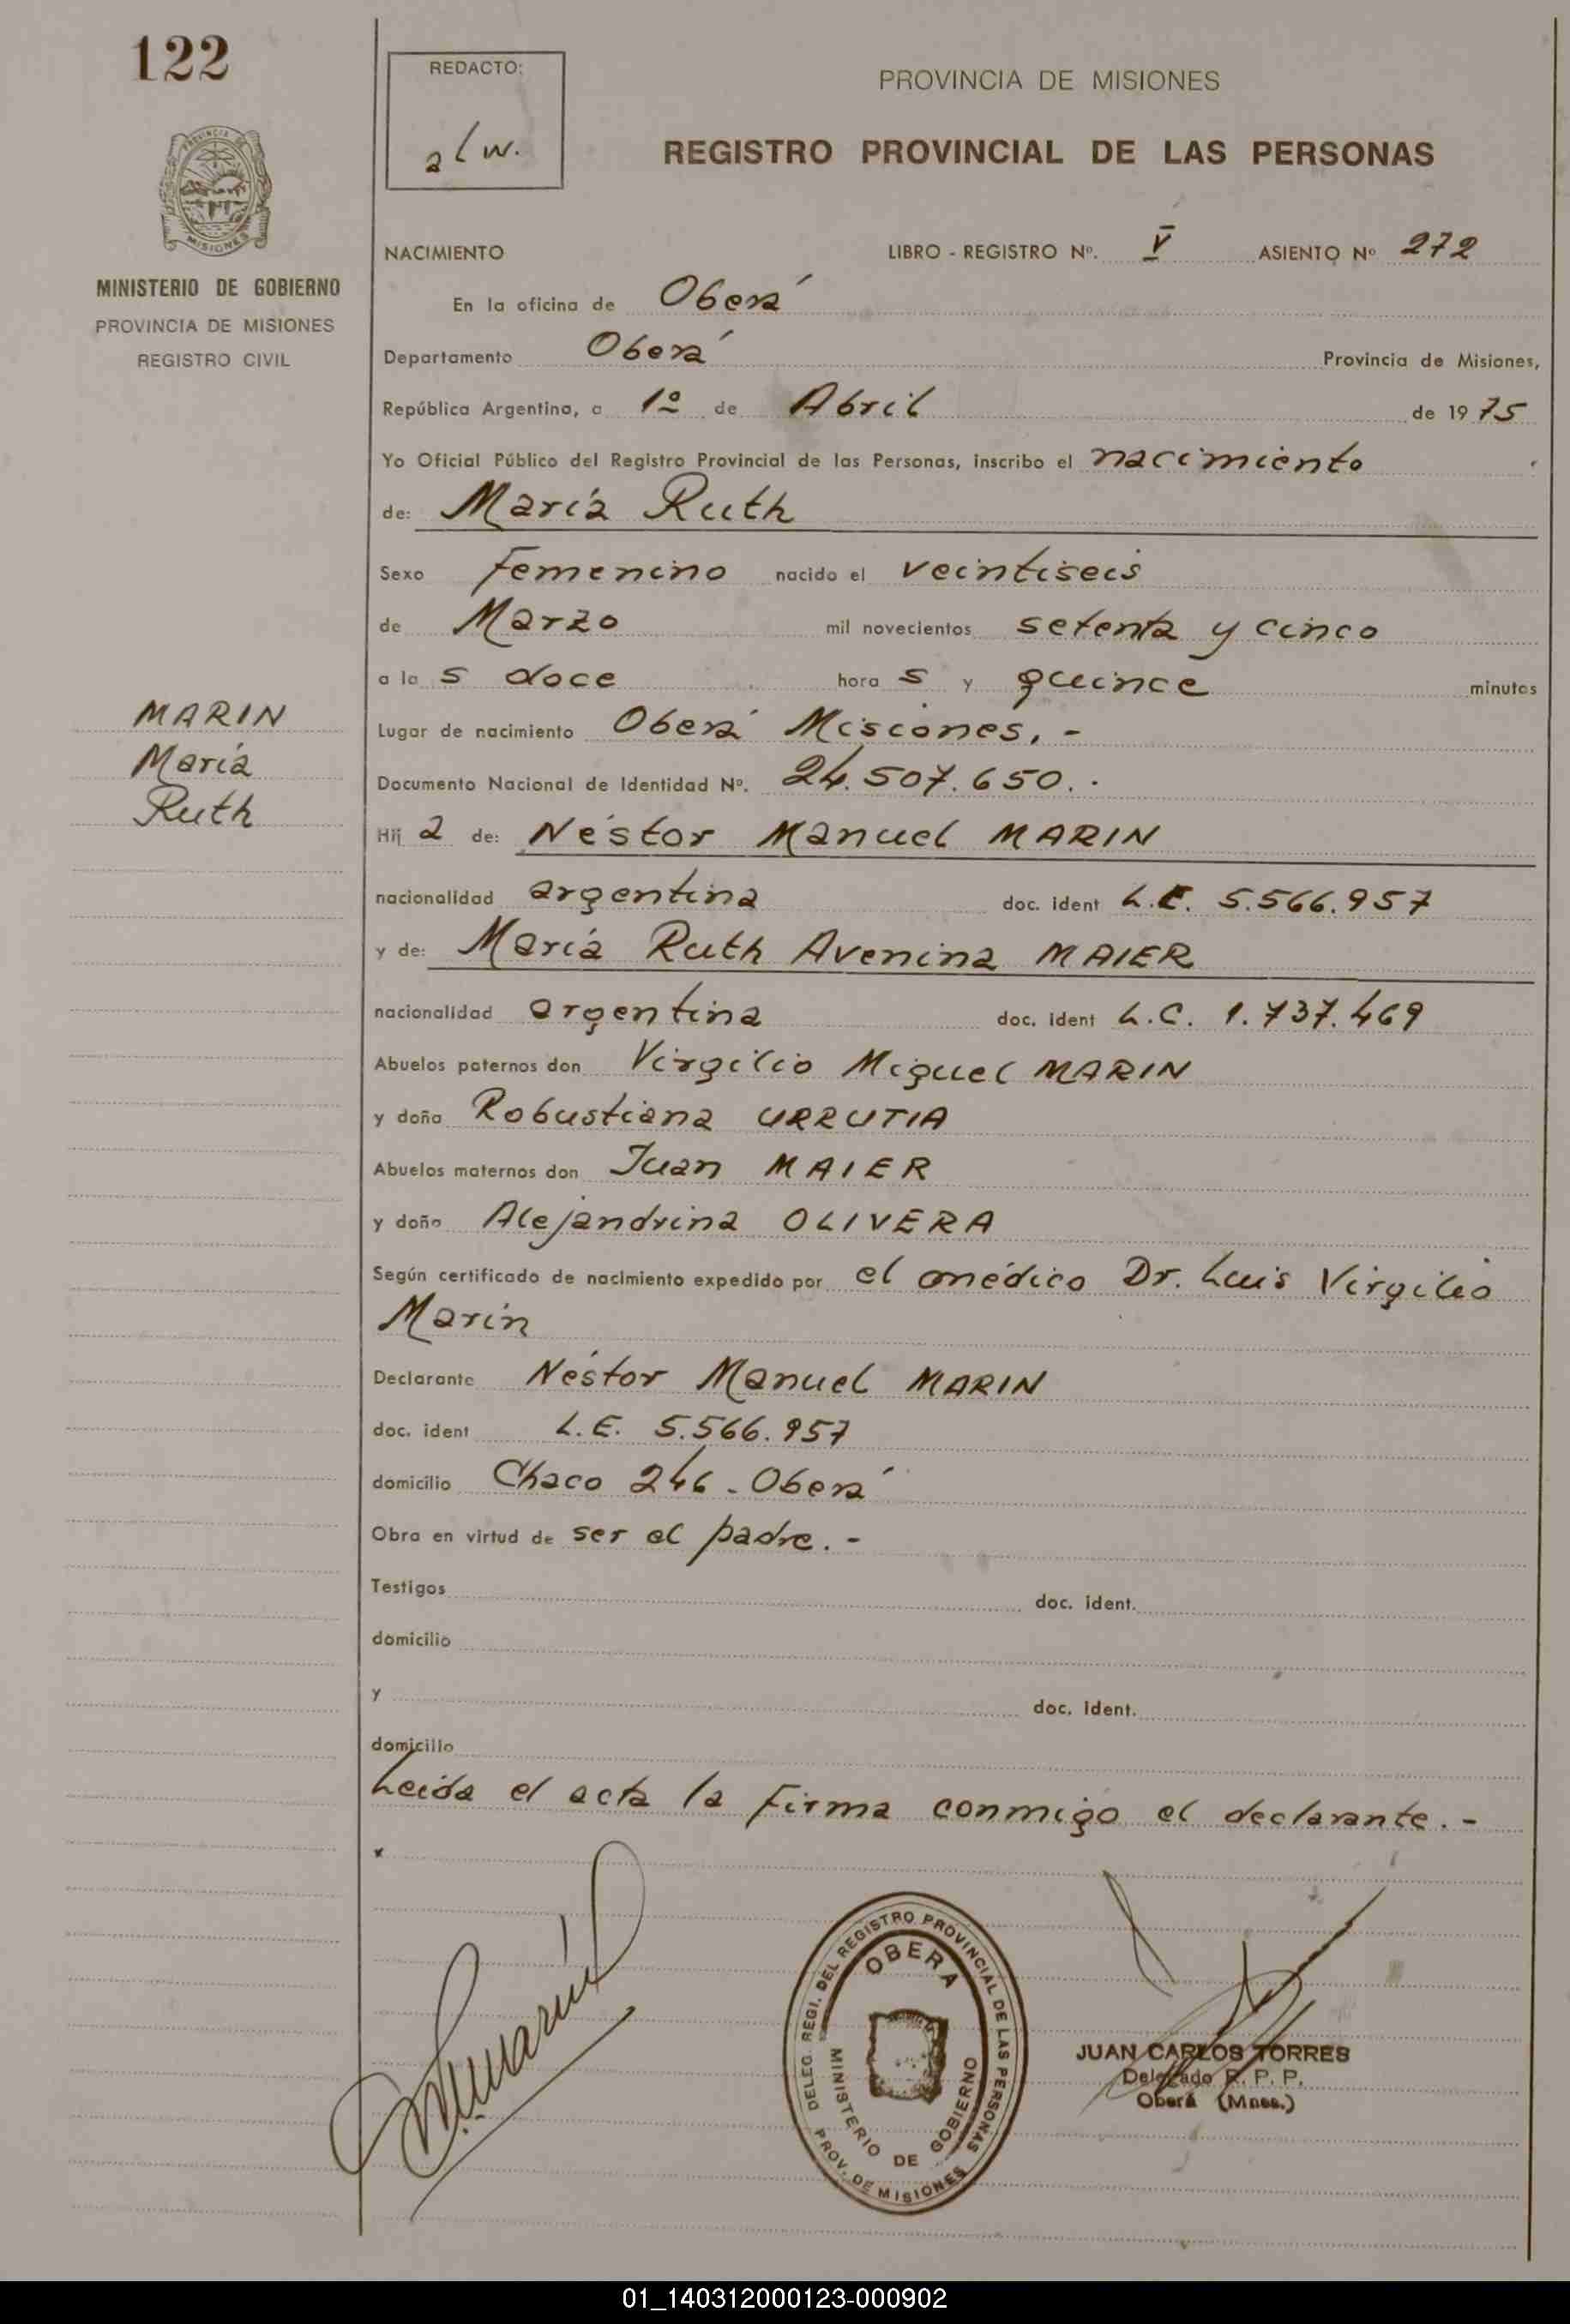 122
REDACTO:
a l w.
PROVINCIA DE MISIONES
REGISTRO PROVINCIAL DE LAS PERSONAS
PROVINCIA DE
MISIONES
MINISTERIO DE GOBIERNO
PROVINCIA DE MISIONES
REGISTRO CIVIL
NACIMIENTO LIBRO - REGISTRO Nº. V ASIENTO Nº 272
En la oficina de Oberá
Departamento Oberá Provincia de Misiones,
República Argentina, a 1º de Abril de 1975
Yo Oficial Público del Registro Provincial de las Personas, inscribo el nacimiento
de: María Ruth
Sexo Femenino nacido el veintiseis
de Marzo mil novecientos setenta y cinco
a las doce horas y quince minutos
Lugar de nacimiento Oberá Misiones. -
Documento Nacional de Identidad Nº. 24.507.650. -
MARIN
María
Ruth
Hija de: Néstor Manuel MARIN
nacionalidad argentina doc. ident L.E. 5.566.957
y de: María Ruth Avenina MAIER
nacionalidad argentina doc. ident L.C. 1.737.469
Abuelos paternos don Virgilio Miguel MARIN
y doña Robustiana URRUTIA
Abuelos maternos don Juan MAIER
y doña Alejandrina OLIVERA
Según certificado de nacimiento expedido por el médico Dr. Luis Virgilio
Marin
Declarante Néstor Manuel MARIN
doc. ident L.E. 5.566.957
domicilio Chaco 246 - Oberá
Obra en virtud de ser el padre. -
Testigos doc. ident.
domicilio
y doc. ident.
domicilio
Leida el acta la firma conmigo el declarante. -
DELEG. REGI. DEL REGISTRO PROVINCIAL DE LAS PERSONAS
OBERA
MINISTERIO DE GOBIERNO
PROV. DE MISIONES
JUAN CARLOS TORRES
Delegado R. P. P.
Oberá (Mnes.)
01_140312000123-000902